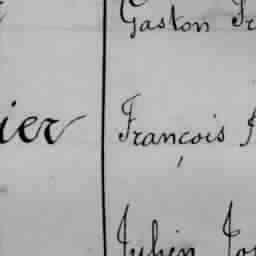 Gaston
ier François
Julien